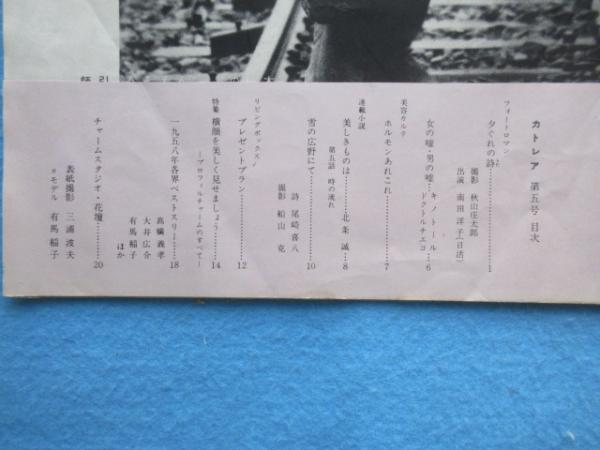 カトレア 第五号 目次
フォートロマン
夕ぐれの詩……………1
撮影 秋山庄太郎
出演 南田洋子(日活)
女の嘘・男の嘘…キノトール…6
ドクトルチエコ
美容カルテ
ホルモンあれこれ……………7
連載小説
美しきものは……北条誠…8
第五話 時の流れ
雪の広野にて……………10
詩 尾崎喜八
撮影 船山克
リビングボックス
プレゼントプラン……………12
特集 横顔を美しく見せましょう……14
―プロフィルチャームのすべて―
一九五八年各界ベストスリー……18
高橋義孝
大井広介
有馬稲子
ほか
チャームスタジオ・花壇……………20
表紙撮影 三浦波夫
〃モデル 有馬稲子